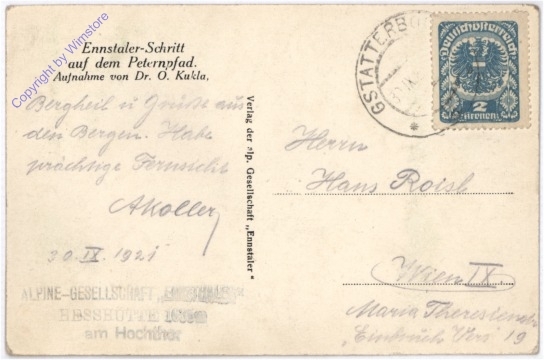 Copyright by Wimstore
Ennstaler-Schritt
auf dem Peternpfad.
Aufnahme von Dr. O. Kukla.
Bergheil u. Grüße aus
den Bergen. Habe
prächtige Fernsicht
AKoller
30.IX.1921
ALPINE-GESELLSCHAFT
HESSHÜTTE
am Hochthor
Verlag der alp. Gesellschaft „Ennstaler“
GSTATTERBO
Deutschösterreich
2
Kronen
Herrn
Hans
Wien IX
Maria Theresienstr
19